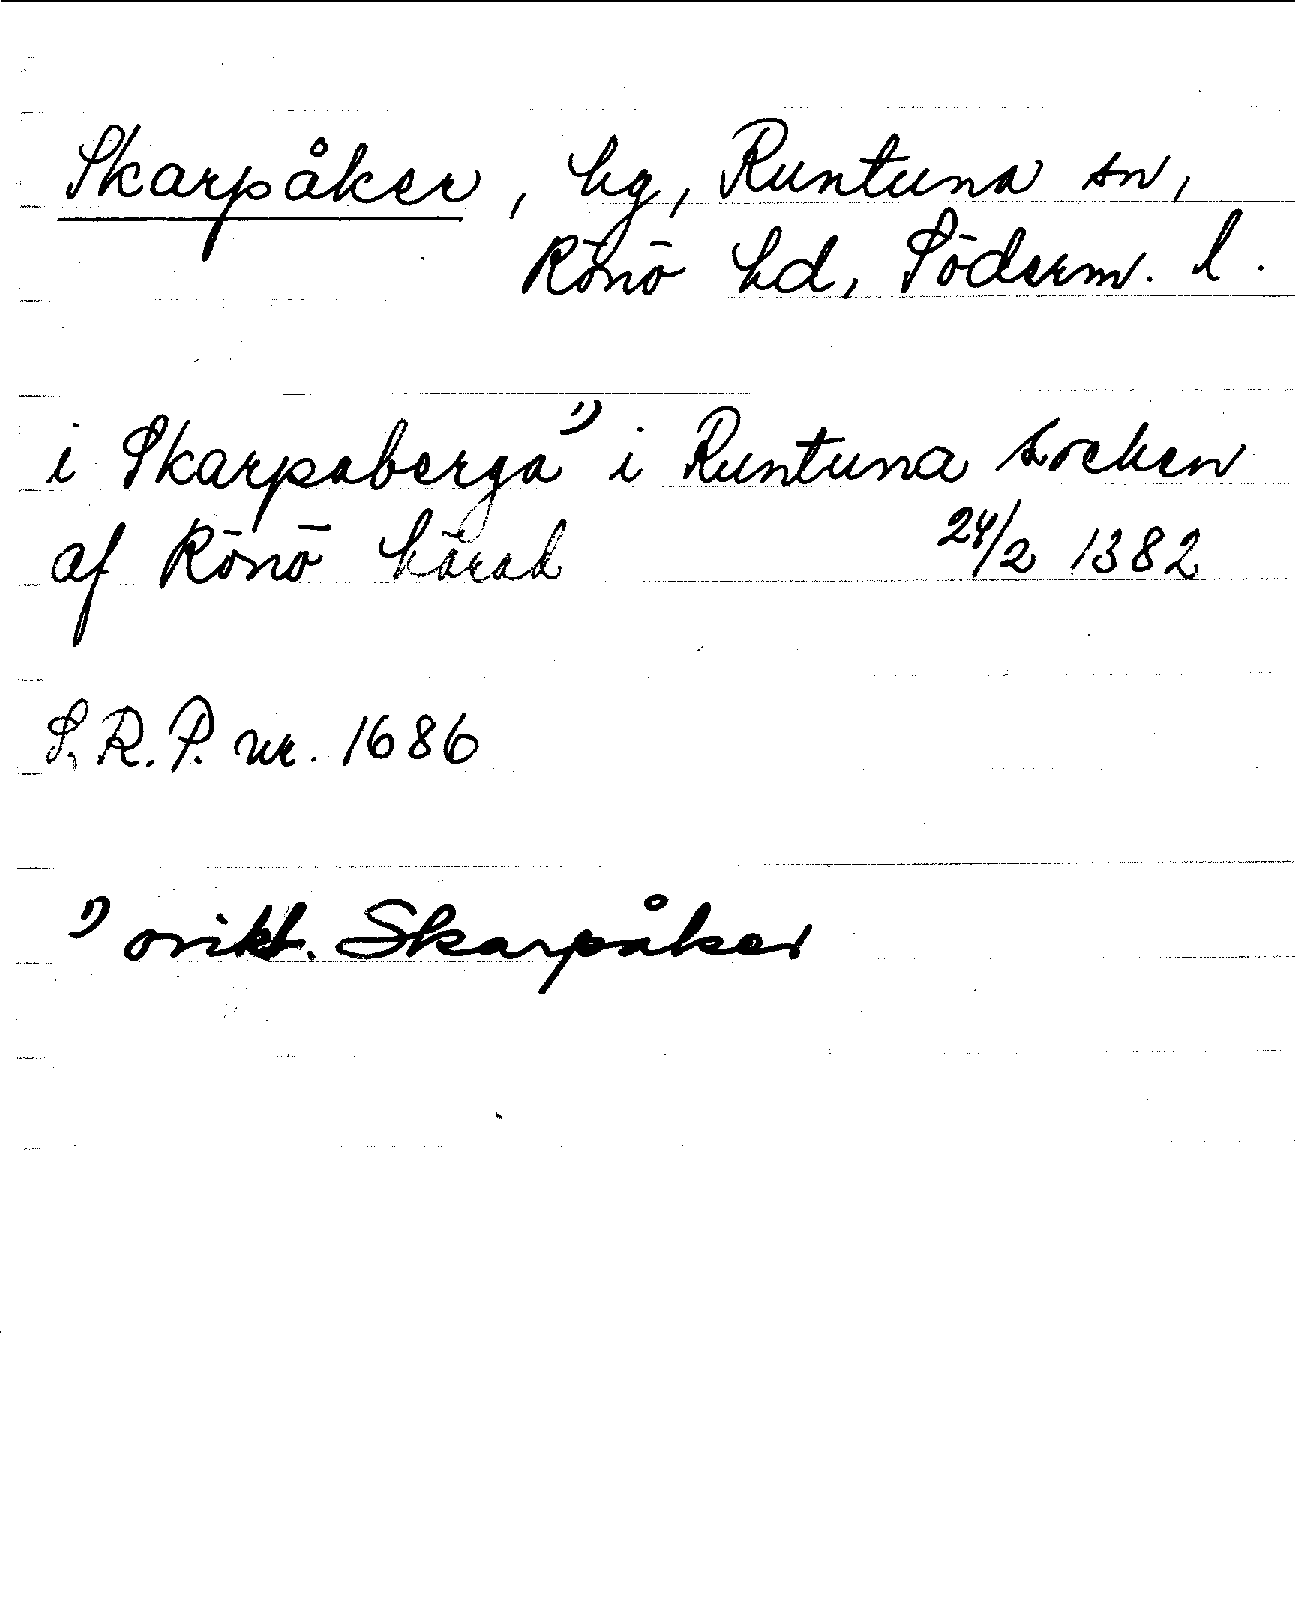 Skarpåker, hg, Runtuna sn,
Rönö hd, Söderm. l.
i Skarpaberga 1) i Runtuna socken
af Rönö härad 24/2 1382
S.R.P. nr. 1686
1) orikt. Skarpåker